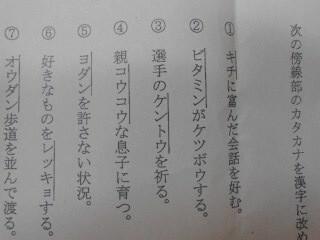 次の傍線部のカタカナを漢字に改め
① キチに富んだ会話を好む。
② ビタミンがケツボウする。
③ 選手のケントウを祈る。
④ 親コウコウな息子に育つ。
⑤ ヨダンを許さない状況。
⑥ 好きなものをレッキョする。
⑦ オウダン歩道を並んで渡る。